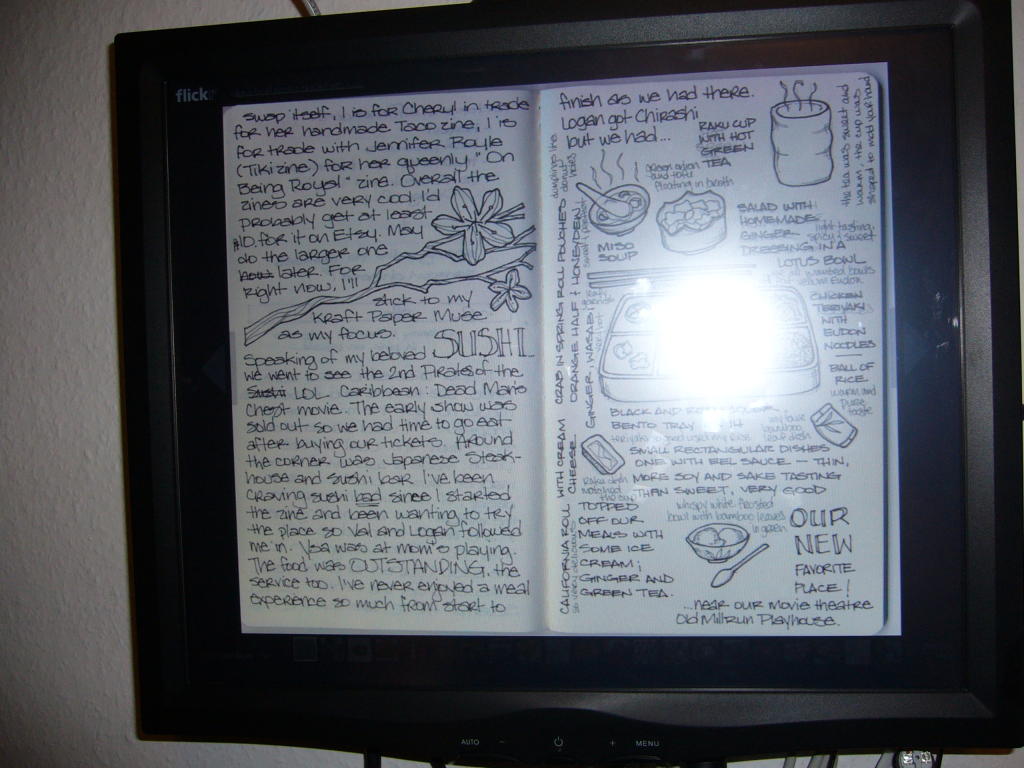 flickr
swap itself, 1 is for Cheryl in trade
for her handmade Taco zine, 1 is
for trade with Jennifer Royle
(Tiki zine) for her queenly "On
Being Royal" zine. Overall the
zines are very cool. I'd
probably get at least
$10 for it on Etsy. May
do the larger one
later. For
right now, I'll
stick to my
Kraft Paper Muse
as my focus.
SUSHI
Speaking of my beloved
we went to see the 2nd Pirates of the
Sushi LOL Caribbean: Dead Man's
Chest movie. The early show was
sold out so we had time to go eat
after buying our tickets. Around
the corner was Japanese Steak-
house and sushi bar. I've been
craving sushi bad since I started
the zine and been wanting to try
the place so Val and Logan followed
me in. Ysa was at mom's playing.
The food was OUTSTANDING, the
service too. I've never enjoyed a meal
experience so much from start to
finish as we had there.
Logan got Chirashi
but we had...
RAKU CUP
WITH HOT
GREEN
TEA
the tea was sweet and
warm, the cup was
shaped to mold your hand
green onion
and tofu
floating in broth
MISO
SOUP
SALAD WITH
HOMEMADE
GINGER
DRESSING IN A
LOTUS BOWL
light tasting,
spicy & sweet
we all wanted bowls
CHICKEN
TERIYAKI
WITH
EUDON
NOODLES
BALL OF
RICE
warm and
pure
taste
CALIFORNIA ROLL WITH CREAM CHEESE.
CRAB IN SPRING ROLL POUCHES
ORANGE HALF & HONEYDEW
GINGER, WASABI
BLACK AND
BENTO TRAY
my fave
bamboo
leaf dish
SMALL RECTANGULAR DISHES
ONE WITH EEL SAUCE — THIN,
MORE SOY AND SAKE TASTING
THAN SWEET, VERY GOOD
raku dish
matched
the cup
TOPPED
OFF OUR
MEALS WITH
SOME ICE
CREAM;
GINGER AND
GREEN TEA.
whispy white frosted
bowl with bamboo leaves
in green
OUR
NEW
FAVORITE
PLACE!
...near our movie theatre
Old Millrun Playhouse.
AUTO
MENU